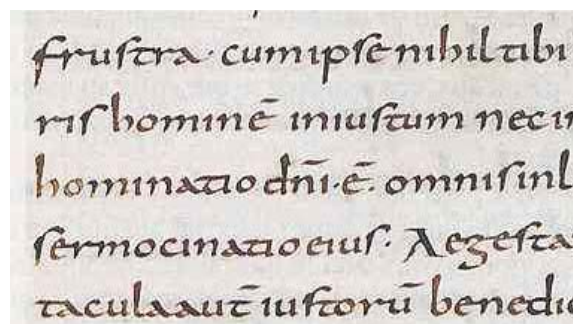 frustra · cum ipse nihil tibi
ris hominē iniustum nec in
hominatio dn̄i · ē · omnis inl
sermocinatio eius · Aegesta
tacula aut̄ iustorū benedic